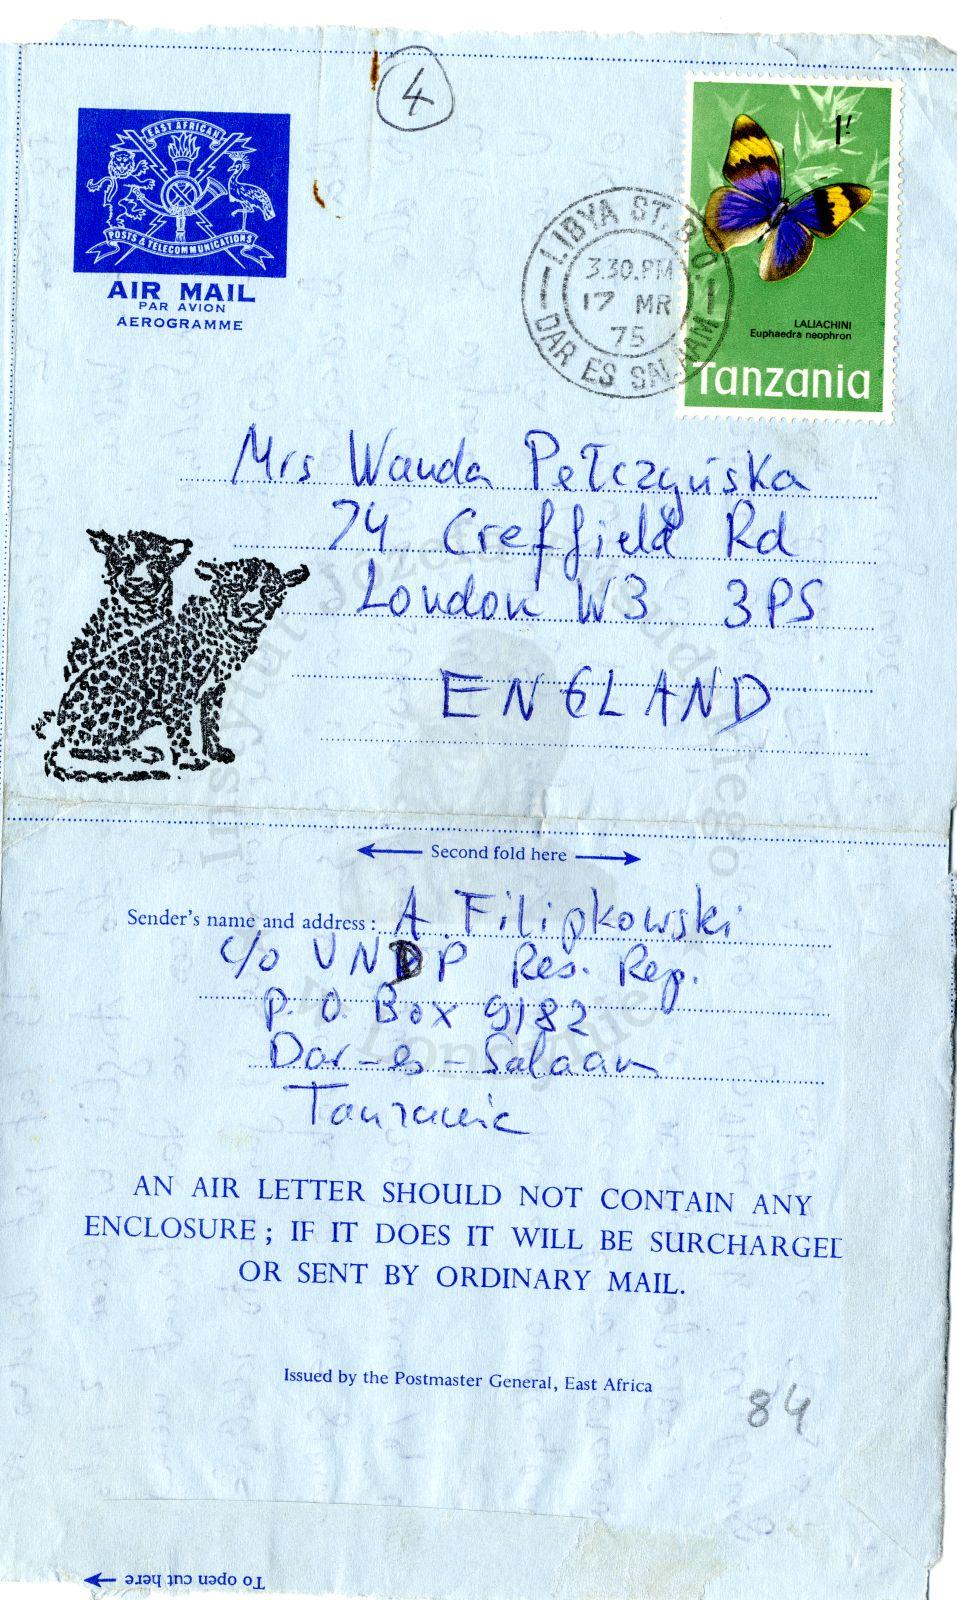 4
EAST AFRICAN
POSTS & TELECOMMUNICATIONS
AIR MAIL
PAR AVION
AEROGRAMME
LIBYA ST. B.O.
3.30.PM
17 MR
75
DAR ES SALAAM
1/-
LALIACHINI
Euphaedra neophron
Tanzania
Mrs Wanda Pełczyńska
74 Creffield Rd
London W3 3PS
ENGLAND
Instytut Józefa Piłsudskiego
w Londynie
Second fold here
Sender's name and address: A. Filipkowski
c/o UNDP Res. Rep.
P.O. Box 9182
Dar-es-Salaam
Tanzania
AN AIR LETTER SHOULD NOT CONTAIN ANY
ENCLOSURE; IF IT DOES IT WILL BE SURCHARGED
OR SENT BY ORDINARY MAIL.
Issued by the Postmaster General, East Africa
84
To open cut here